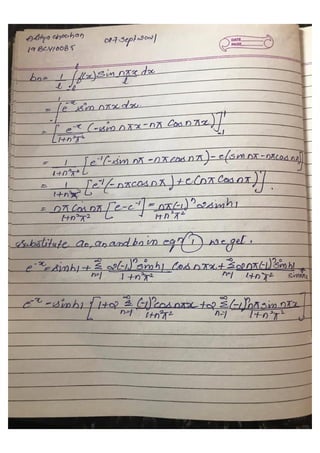 Aditya chauhan 07 Sep/2021 DATE
19BCY10085 PAGE
bn = 1/l ∫_{-l}^{l} f(x) sin nπx/l dx
= ∫_{-1}^{1} e^{-x} sin nπx dx.
= [e^{-x}/(1+n²π²) (-sin nπx - nπ cos nπx)]_{-1}^{1}
= 1/(1+n²π²) [e^{-1}(-sin nπ - nπ cos nπ) - e(sin nπ - nπ cos nπ)]
= 1/(1+n²π²) [e^{-1}(-nπ cos nπ) + e(nπ cos nπ)].
= nπ cos nπ/(1+n²π²) [e - e^{-1}] = nπ(-1)^n 2 sinh1/(1+n²π²)
Substitute ao, an and bn in eqn (1) we get.
e^{-x} = sinh1 + Σ_{n=1}^{∞} 2(-1)^n sinh1/(1+n²π²) cos nπx + Σ_{n=1}^{∞} 2nπ(-1)^n sinh1/(1+n²π²) sin nπx
e^{-x} = sinh1 [1 + 2 Σ_{n=1}^{∞} (-1)^n cos nπx/(1+n²π²) + 2 Σ_{n=1}^{∞} (-1)^n nπ sin nπx/(1+n²π²)]